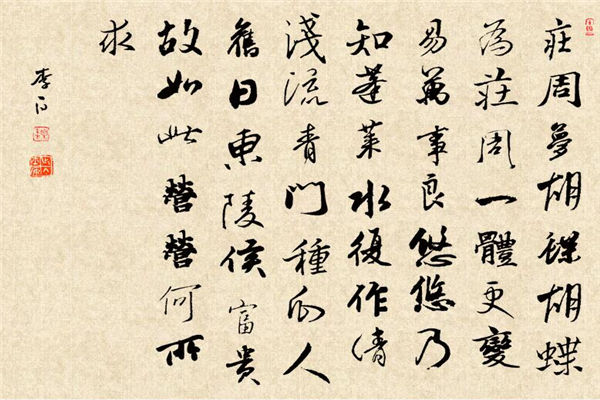 庄周夢胡蝶胡蝶
為莊周一體更變
易萬事良悠悠乃
知蓬萊水復作清
淺流青門種瓜人
舊日東陵侯富貴
故如此營營何所
求
李